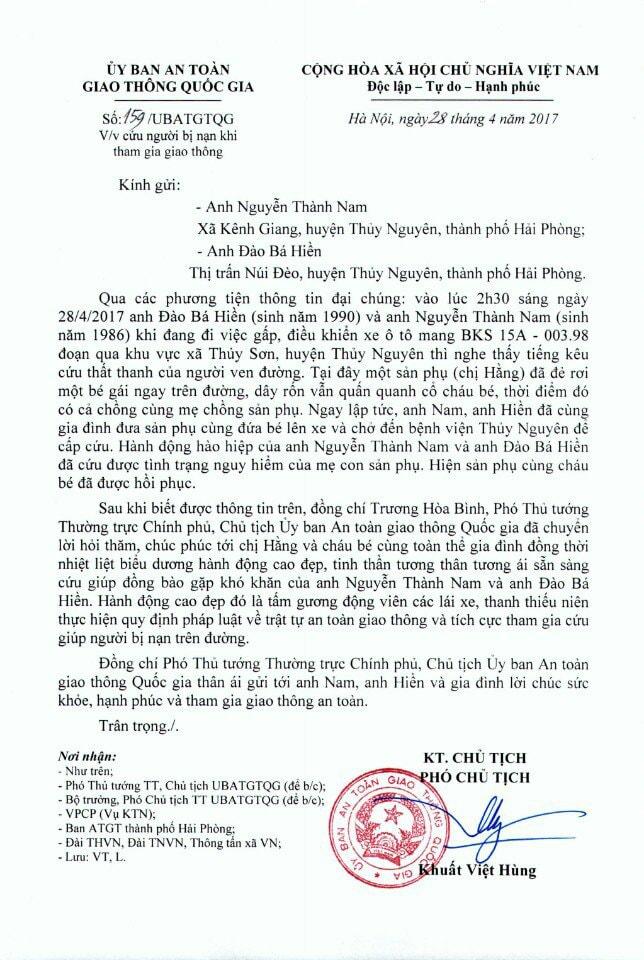 ỦY BAN AN TOÀN
GIAO THÔNG QUỐC GIA
CỘNG HÒA XÃ HỘI CHỦ NGHĨA VIỆT NAM
Độc lập – Tự do – Hạnh phúc
Số: 159 /UBATGTQG
V/v cứu người bị nạn khi
tham gia giao thông
Hà Nội, ngày 28 tháng 4 năm 2017
Kính gửi:
- Anh Nguyễn Thành Nam
Xã Kênh Giang, huyện Thủy Nguyên, thành phố Hải Phòng;
- Anh Đào Bá Hiền
Thị trấn Núi Đèo, huyện Thủy Nguyên, thành phố Hải Phòng.
Qua các phương tiện thông tin đại chúng: vào lúc 2h30 sáng ngày
28/4/2017 anh Đào Bá Hiền (sinh năm 1990) và anh Nguyễn Thành Nam (sinh
năm 1986) khi đang đi việc gấp, điều khiển xe ô tô mang BKS 15A - 003.98
đoạn qua khu vực xã Thủy Sơn, huyện Thủy Nguyên thì nghe thấy tiếng kêu
cứu thất thanh của người ven đường. Tại đây một sản phụ (chị Hằng) đã đẻ rơi
một bé gái ngay trên đường, dây rốn vẫn quấn quanh cổ cháu bé, thời điểm đó
có cả chồng cùng mẹ chồng sản phụ. Ngay lập tức, anh Nam, anh Hiền đã cùng
gia đình đưa sản phụ cùng đứa bé lên xe và chở đến bệnh viện Thủy Nguyên để
cấp cứu. Hành động hào hiệp của anh Nguyễn Thành Nam và anh Đào Bá Hiền
đã cứu được tình trạng nguy hiểm của mẹ con sản phụ. Hiện sản phụ cùng cháu
bé đã được hồi phục.
Sau khi biết được thông tin trên, đồng chí Trương Hòa Bình, Phó Thủ tướng
Thường trực Chính phủ, Chủ tịch Ủy ban An toàn giao thông Quốc gia đã chuyển
lời hỏi thăm, chúc phúc tới chị Hằng và cháu bé cùng toàn thể gia đình đồng thời
nhiệt liệt biểu dương hành động cao đẹp, tinh thần tương thân tương ái sẵn sàng
cứu giúp đồng bào gặp khó khăn của anh Nguyễn Thành Nam và anh Đào Bá
Hiền. Hành động cao đẹp đó là tấm gương động viên các lái xe, thanh thiếu niên
thực hiện quy định pháp luật về trật tự an toàn giao thông và tích cực tham gia cứu
giúp người bị nạn trên đường.
Đồng chí Phó Thủ tướng Thường trực Chính phủ, Chủ tịch Ủy ban An toàn
giao thông Quốc gia thân ái gửi tới anh Nam, anh Hiền và gia đình lời chúc sức
khỏe, hạnh phúc và tham gia giao thông an toàn.
Trân trọng./.
Nơi nhận:
- Như trên;
- Phó Thủ tướng TT, Chủ tịch UBATGTQG (để b/c);
- Bộ trưởng, Phó Chủ tịch TT UBATGTQG (để b/c);
- VPCP (Vụ KTN);
- Ban ATGT thành phố Hải Phòng;
- Đài THVN, Đài TNVN, Thông tấn xã VN;
- Lưu: VT, L.
KT. CHỦ TỊCH
PHÓ CHỦ TỊCH
ỦY BAN AN TOÀN GIAO THÔNG QUỐC GIA
Khuất Việt Hùng